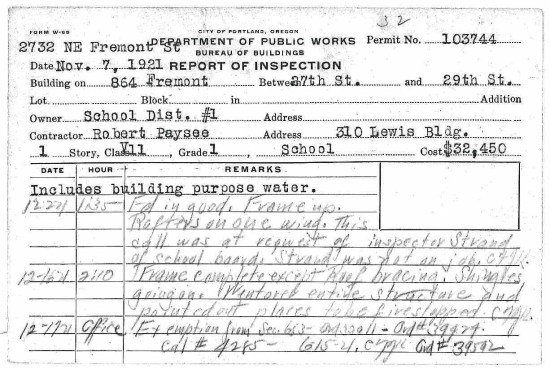 32
FORM W-68 CITY OF PORTLAND, OREGON
2732 NE Fremont St DEPARTMENT OF PUBLIC WORKS Permit No. 103744
BUREAU OF BUILDINGS
Date Nov. 7, 1921 REPORT OF INSPECTION
Building on 864 Fremont Betw 27th St. and 29th St.
Lot Block in Addition
Owner School Dist. #1 Address
Contractor Robert Paysee Address 310 Lewis Bldg.
1 Story, Class VII Grade 1 School Cost $32,450
DATE HOUR REMARKS
Includes building purpose water.
1:35 Fd in good. Frame up.
Rafters on one wing. This
call was at request of inspector Strand
of school board. Strand was not on job.
2:10 Frame complete except Roof bracing. Shingles
going on. entire structure and
pointed out places to be firestopped.
Office Exemption from Sec. 653-
Cal # 4285- 615-21. Ord # 39592